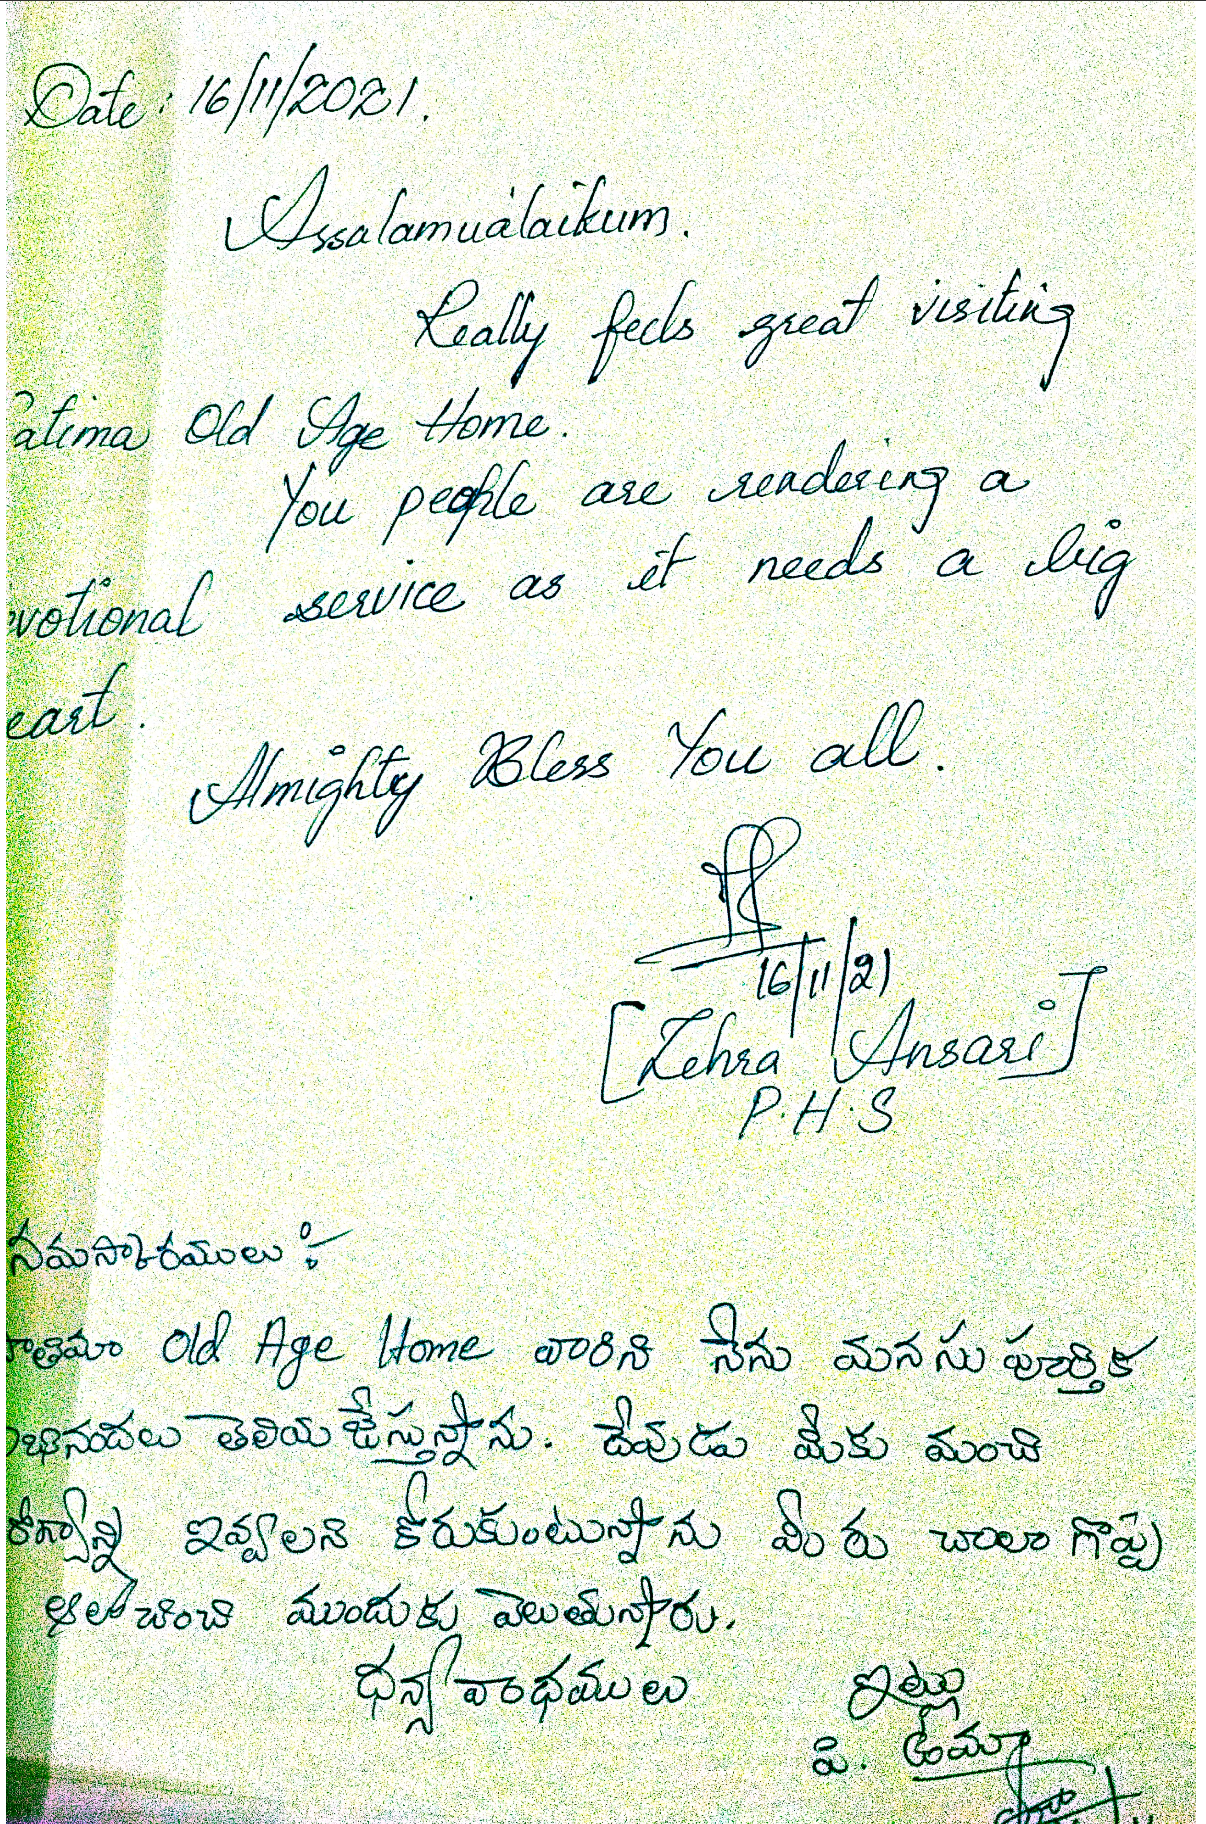 Date: 16/11/2021.
Assalamualaikum.
Really feels great visiting
atima Old Age Home.
You people are rendering a
votional service as it needs a big
eart.
Almighty Bless You all.
16/11/21
[Zehra Ansari]
P.H.S
నమస్కారములు :-
ాతిమా Old Age Home వారిని నేను మనసు పూర్తిక
భినందలు తెలియజేస్తున్నాను. దేవుడు మీకు మంచి
రోగ్యాన్ని ఇవ్వాలని కోరుకుంటున్నాను మీరు చాలా గొప్ప
ఆలోచించి ముందుకు వెలుతున్నారు.
ధన్యవాదములు ఇట్లు
పి. ఉమా